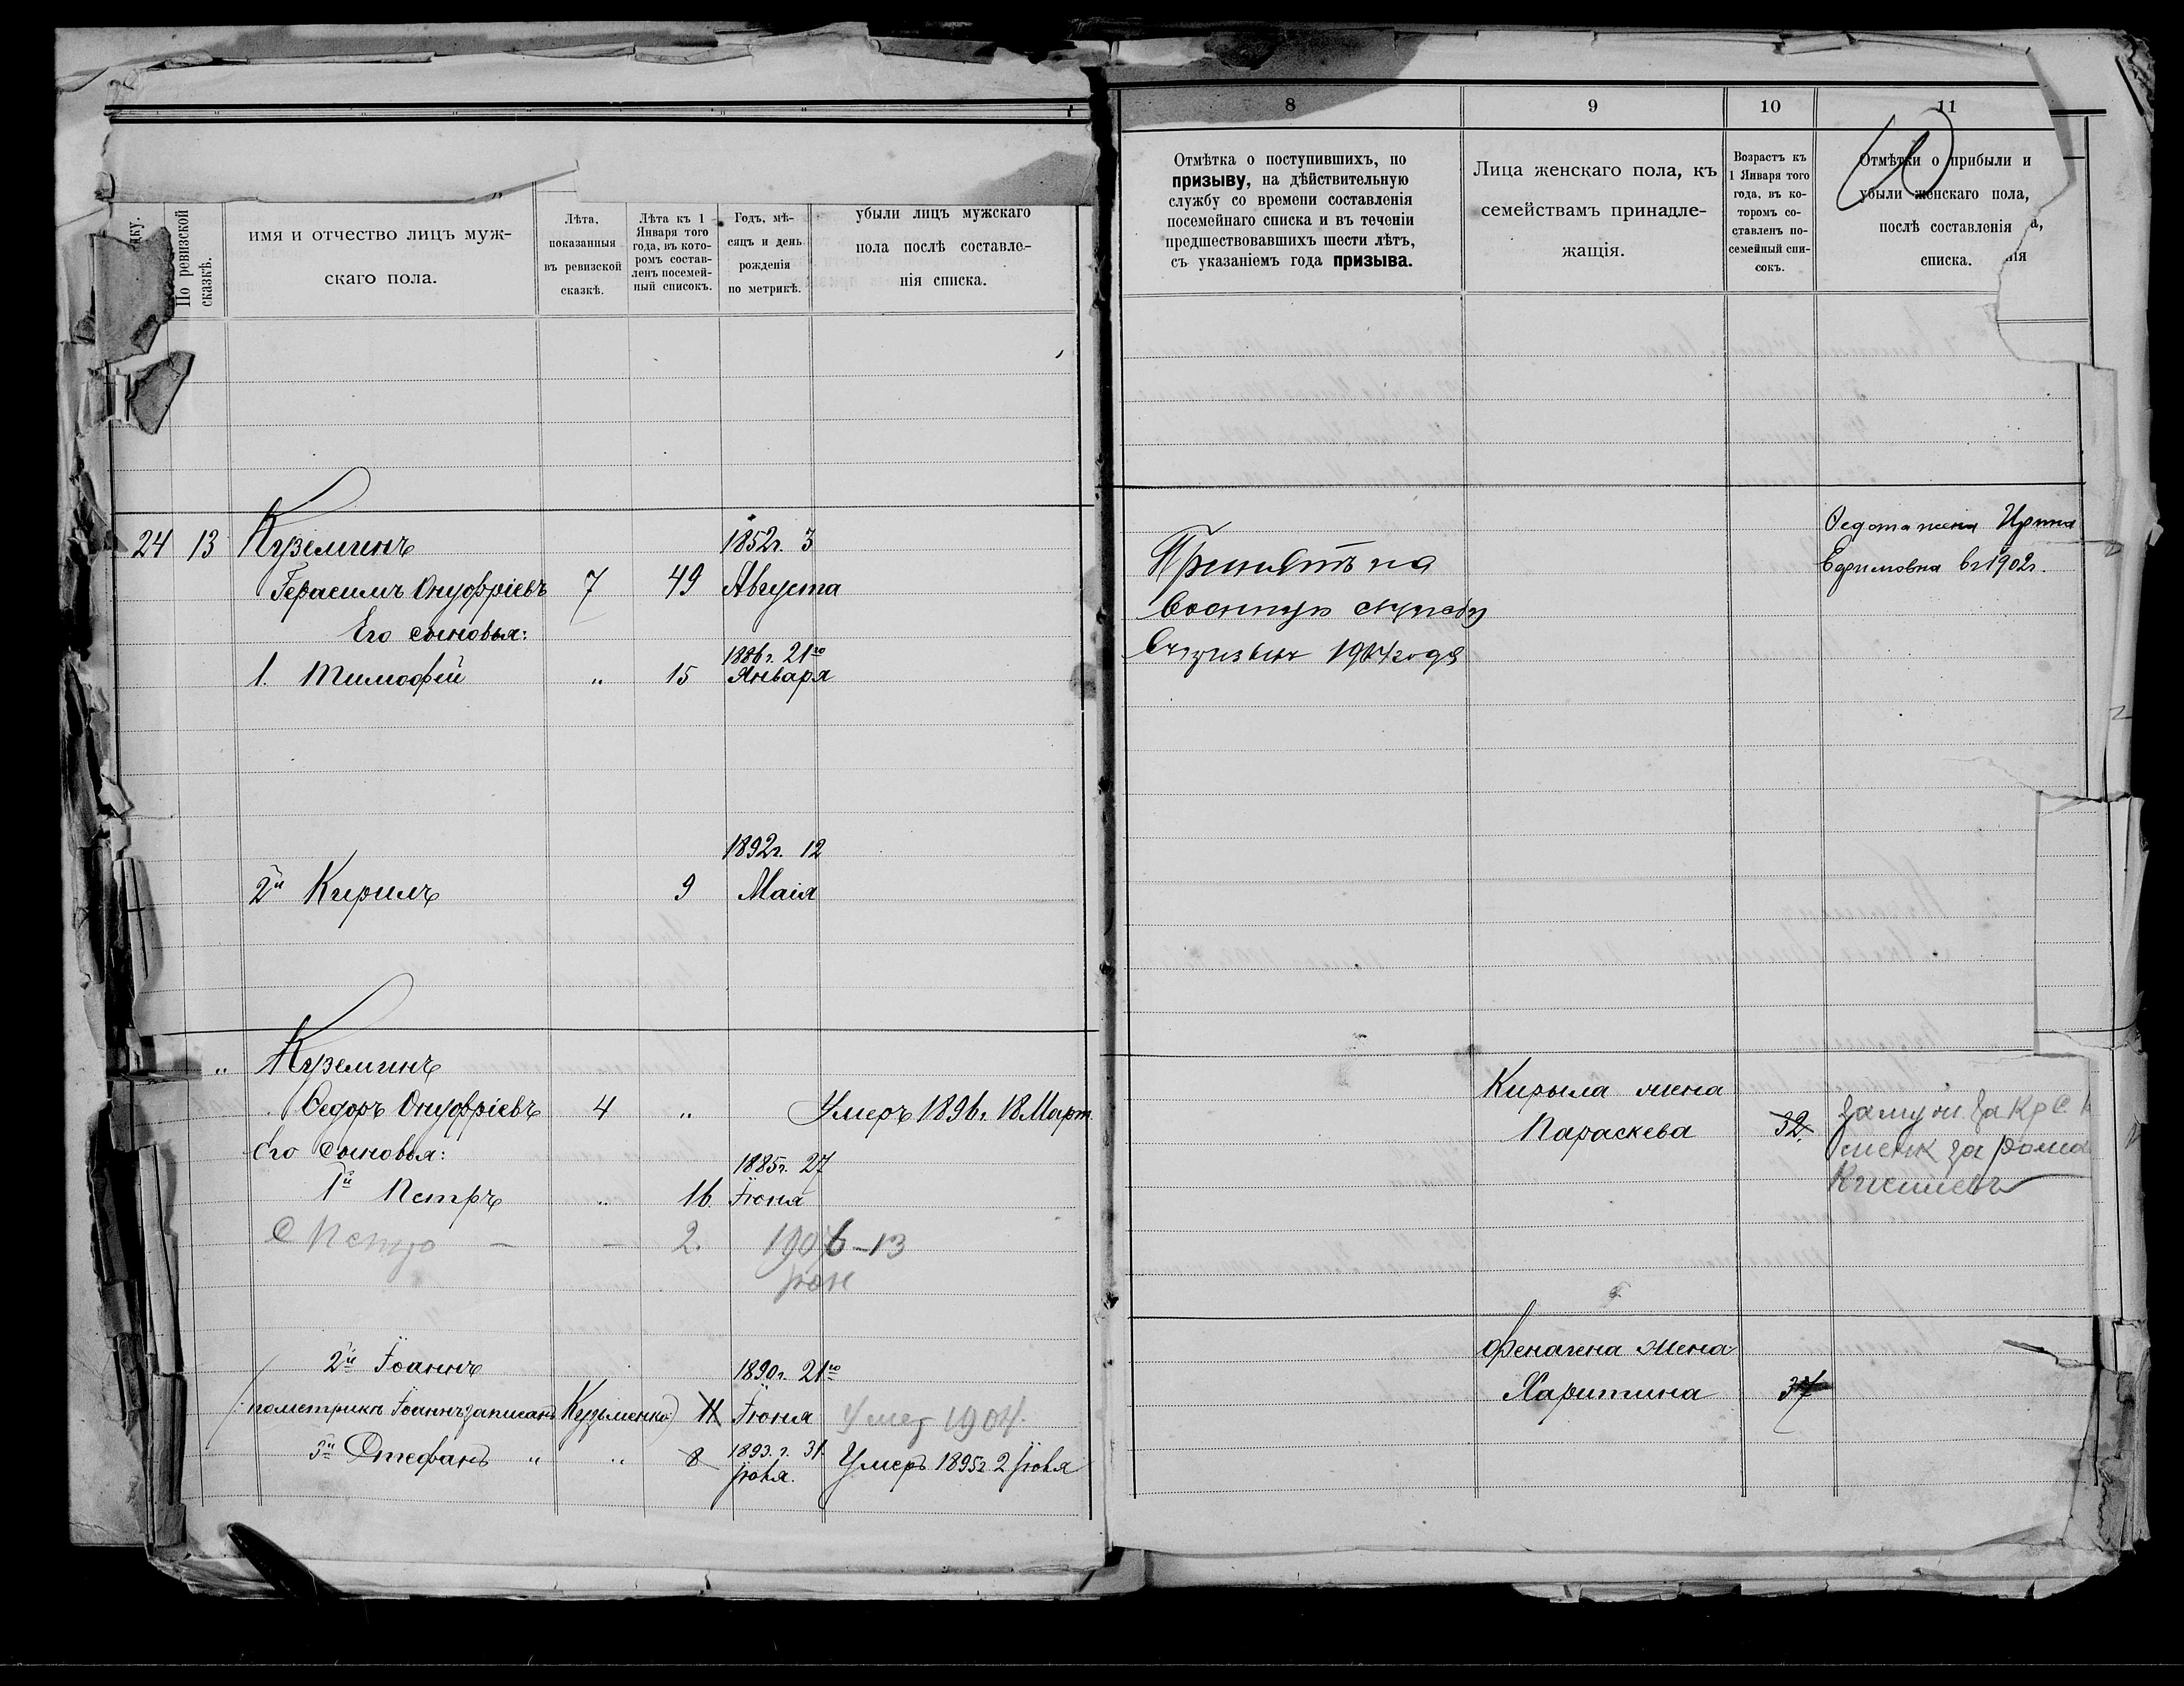 По ревизской
сказкѣ.
имя и отчество лицъ муж-
скаго пола.
Лѣта,
показанныя
въ ревизской
сказкѣ.
Лѣта къ 1
Января того
года, въ кото-
ромъ состав-
ленъ посемей-
ный списокъ.
Годъ, мѣ-
сяцъ и день
рожденія
по метрикѣ.
убыли лицъ мужскаго
пола послѣ составле-
нія списка.
24 13 Куземинъ 1852г. 3
Герасимъ Онуфріевъ 7 49 Августа
Его сыновья:
1886г. 21го
1. Тимофѣй " 15 Января
1892г. 12
2й Кирилъ 9 Маія
" Куземинъ
Ѳедоръ Онуфріевъ 4 " Умеръ 1896г. 18 Март
Его сыновья:
1885г. 27
1й Петръ " 16. Іюня
Петро — — 2. 1906-13
Іюн
2й Іоаннъ 1890г. 21го
(пометрикѣ Іоаннъ записанъ Кузьменко) 11 Іюня Умер 1904.
3й Стефанъ " " 8 1893.г. 31
Іюля. Умеръ 1895г 2 Іюля
8
Отмѣтка о поступившихъ, по
призыву, на дѣйствительную
службу со времени составленія
посемейнаго списка и въ теченіи
предшествовавшихъ шести лѣтъ,
съ указаніемъ года призыва.
9
Лица женскаго пола, къ
семействамъ принадле-
жащія.
10
Возрастъ къ
1 Января того
года, въ ко-
торомъ со-
ставленъ по-
семейный спи-
сокъ.
11
Отмѣтки о прибыли и
убыли женскаго пола,
послѣ составленія
списка.
Ѳедота жена Ирина
Ефимовна въ 1902г.
Принятъ на
военную службу
1904 года
Кирыла жена
Параскева 32.
замуж. за
Харитина 37
жена